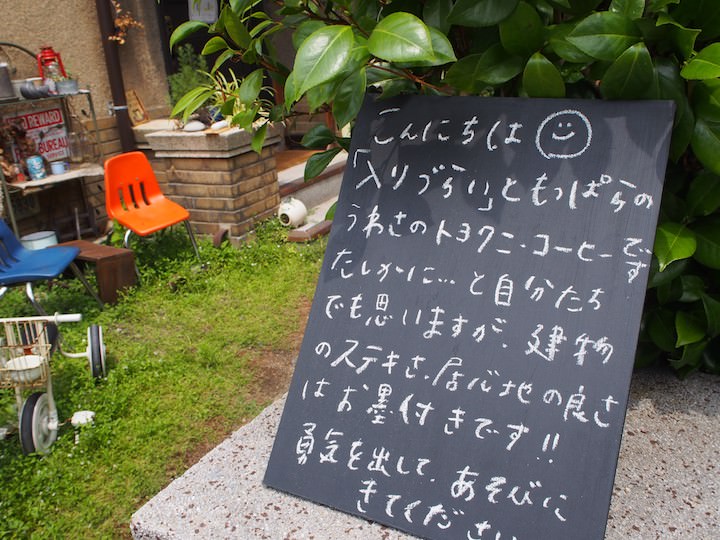 こんにちは
「入りづらい」ともっぱらの
うわさのトヨクニ・コーヒーです
たしかに…と自分たち
でも思いますが、建物
のステキさ、居心地の良さ
はお墨付きです!!
勇気を出して、あそびに
きてください
REWARD
BUREAU